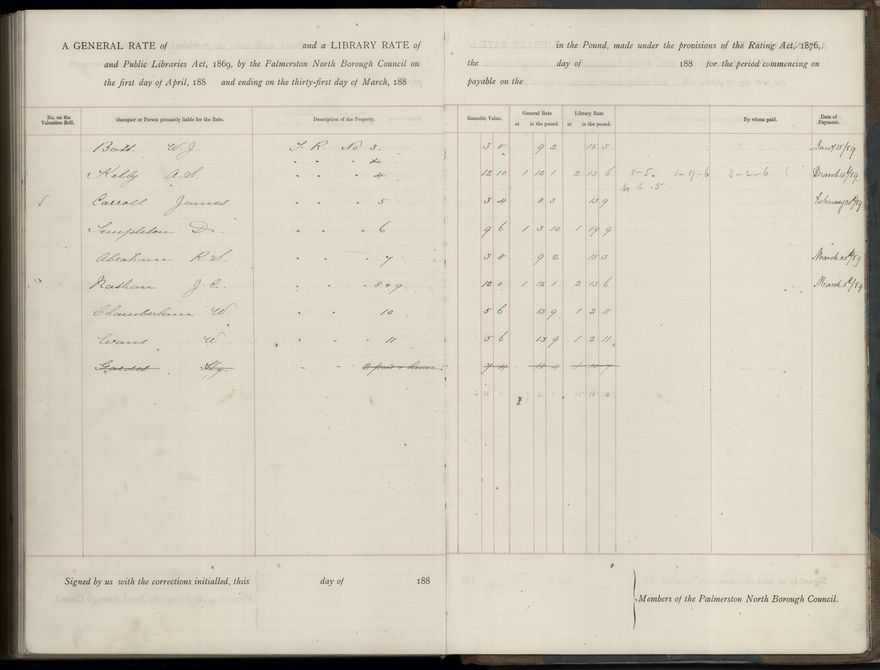 A GENERAL RATE of and a LIBRARY RATE of in the Pound, made under the provisions of the Rating Act, 1876,
and Public Libraries Act, 1869, by the Palmerston North Borough Council on the day of 188 for the period commencing on
the first day of April, 188 and ending on the thirty-first day of March, 188 payable on the
No. on the Valuation Roll. Occupier or Person primarily liable for the Rate. Description of the Property. Rateable Value. General Rate at in the pound. Library Rate at in the pound. By whom paid. Date of Payment.
Batt W J. No 3. 3 8 9 2 15 3
Kelly A. S. " " " 4 12 10 1 12 1 2 13 6 1-17-6 3-2-6
Carroll James " " " 5 3 4 8 3 13 9
Templeton D. " " " 6 9 6 1 3 10 1 19 9
Abraham R S. " " " 7 3 8 9 2 15 3
Nathan J. E. " " " 8 & 9 12 0 1 12 1 2 13 6 March 5th/89
Chamberlain W " " 10 5 6 13 9 1 2 11
Evans W. " " " 11 5 6 13 9 1 2 11
Signed by us with the corrections initialled, this day of 188
Members of the Palmerston North Borough Council.